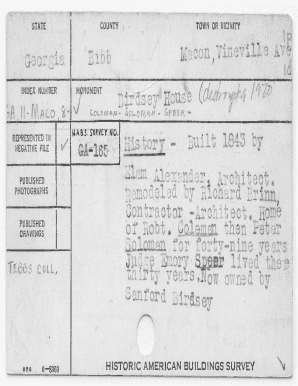 STATE
COUNTY
TOWN OR VICINITY
Georgia
Bibb
Macon, Vineville Ave
INDEX NUMBER
MONUMENT
GA, 11-MACO, 8-
Birdsey House
COLEMAN-SOLOMAN-SPEER-
REPRESENTED IN
NEGATIVE FILE
H.A.B.S. SURVEY NO.
GA-165
History - Built 1843 by
Elam Alexander, Architect.
Remodeled by Richard Brinn,
Contractor -Architect. Home
of Robt. Coleman then Peter
Soloman for forty-nine years
Judge Emory Spear lived the
thirty years. Now owned by
Sanford Birdsey
PUBLISHED
PHOTOGRAPHS
PUBLISHED
DRAWINGS
TEBBS COLL.
HISTORIC AMERICAN BUILDINGS SURVEY